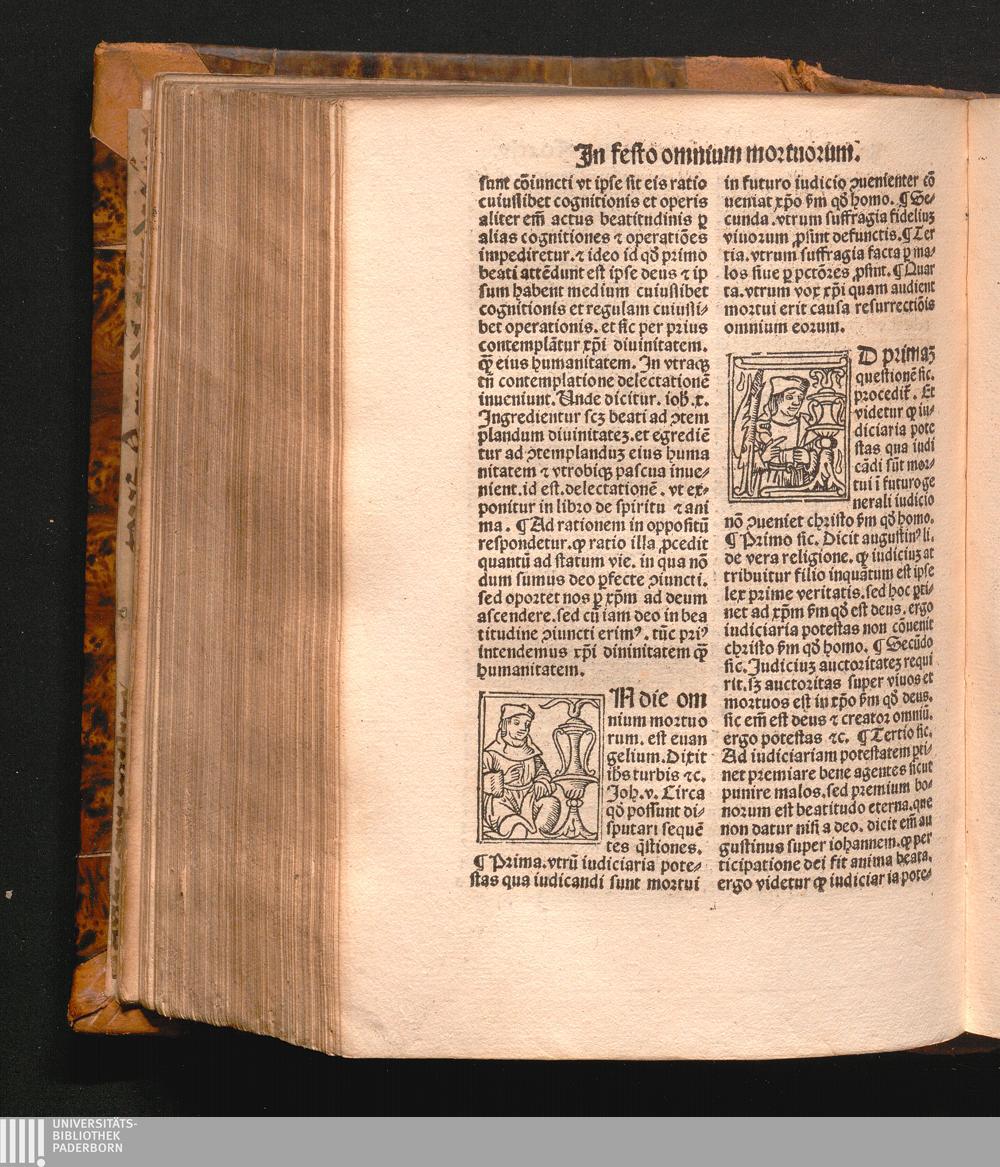 In festo omnium mortuorum.
sunt cōiuncti vt ipse sit eis ratio
cuiuslibet cognitionis et operis
aliter em̄ actus beatitudinis ꝑ
alias cognitiones ⁊ operatiōes
impediretur.⁊ ideo id qď primo
beati attēdunt est ipse deus ⁊ ip
sum habent medium cuiuslibet
cognitionis et regulam cuiusli⸗
bet operationis. et sic per prius
contemplātur xp̄i diuinitatem.
ꝙ̄ eius humanitatem. In vtraqꝫ
tn̄ contemplatione delectationē
inueniunt. Unde dicitur. ioh̄.x.
Ingredientur scꝫ beati ad ꝯtem
plandum diuinitateꝫ.et egrediē
tur ad ꝯtemplanduꝫ eius huma
nitatem ⁊ vtrobiqꝫ pascua inue⸗
nient.id est.delectationē. vt ex⸗
ponitur in libro de spiritu ⁊ ani
ma. ¶ Ad rationem in oppositū
respondetur.ꝙ ratio illa ꝓcedit
quantū ad statum vie. in qua nō
dum sumus deo ꝑfecte ꝯiuncti.
sed oportet nos ꝑ xp̄m ad deum
ascendere.sed cū iam deo in bea
titudine ꝯiuncti erimꝰ. tūc priꝰ
intendemus xp̄i dininitatem ꝙ̄
humanitatem.
IN die om
nium mortuo
rum. est euan
gelium. Dixit
ih̄s turbis ⁊c.
Joh.v. Circa
qď possunt di⸗
sputari sequē
tes q̄stiones.
¶ Prima.vtrū iudiciaria pote⸗
stas qua iudicandi sunt mortui
in futuro iudicio ꝯuenienter cō
ueniat xp̄o ẜm qď homo. ¶ Se⸗
cunda.vtrum suffragia fideliuꝫ
viuorum ꝓsint defunctis.¶ Ter
tia.vtrum suffragia facta ꝑ ma⸗
los siue ꝑ pctōres ꝓsint. ¶ Quar
ta.vtrum vox xp̄i quam audient
mortui erit causa resurrectiōis
omnium eorum.
D primaꝫ
questionē sic.
procedit̄. Et
videtur ꝙ iu⸗
diciaria pote
stas qua iudi
cādi sūt mor⸗
tui ī futuro ge
nerali iudicio
nō ꝯueniet christo ẜm qď homo.
¶ Primo sic. Dicit augustinꝰ li.
de vera religione. ꝙ iudiciuꝫ at
tribuitur filio inquātum est ipse
lex prime veritatis.sed hoc ꝑti⸗
net ad xp̄m ẜm qď est deus. ergo
iudiciaria potestas non cōuenit
christo ẜm qď homo. ¶ Secūdo
sic. Iudiciuꝫ auctoritateꝫ requi
rit.sꝫ auctoritas super viuos et
mortuos est in xp̄o ẜm qď deus.
sic em̄ est deus ⁊ creator omniū.
ergo potestas ⁊c. ¶ Tertio sic.
Ad iudiciariam potestatem ꝑti⸗
net premiare bene agentes sicut
punire malos.sed premium bo⸗
norum est beatitudo eterna.que
non datur nisi a deo. dicit em̄ au
gustinus super iohannem.ꝙ per
ticipatione dei fit anima beata.
ergo videtur ꝙ iudiciar ia pote⸗
UNIVERSITÄTS-
BIBLIOTHEK
PADERBORN